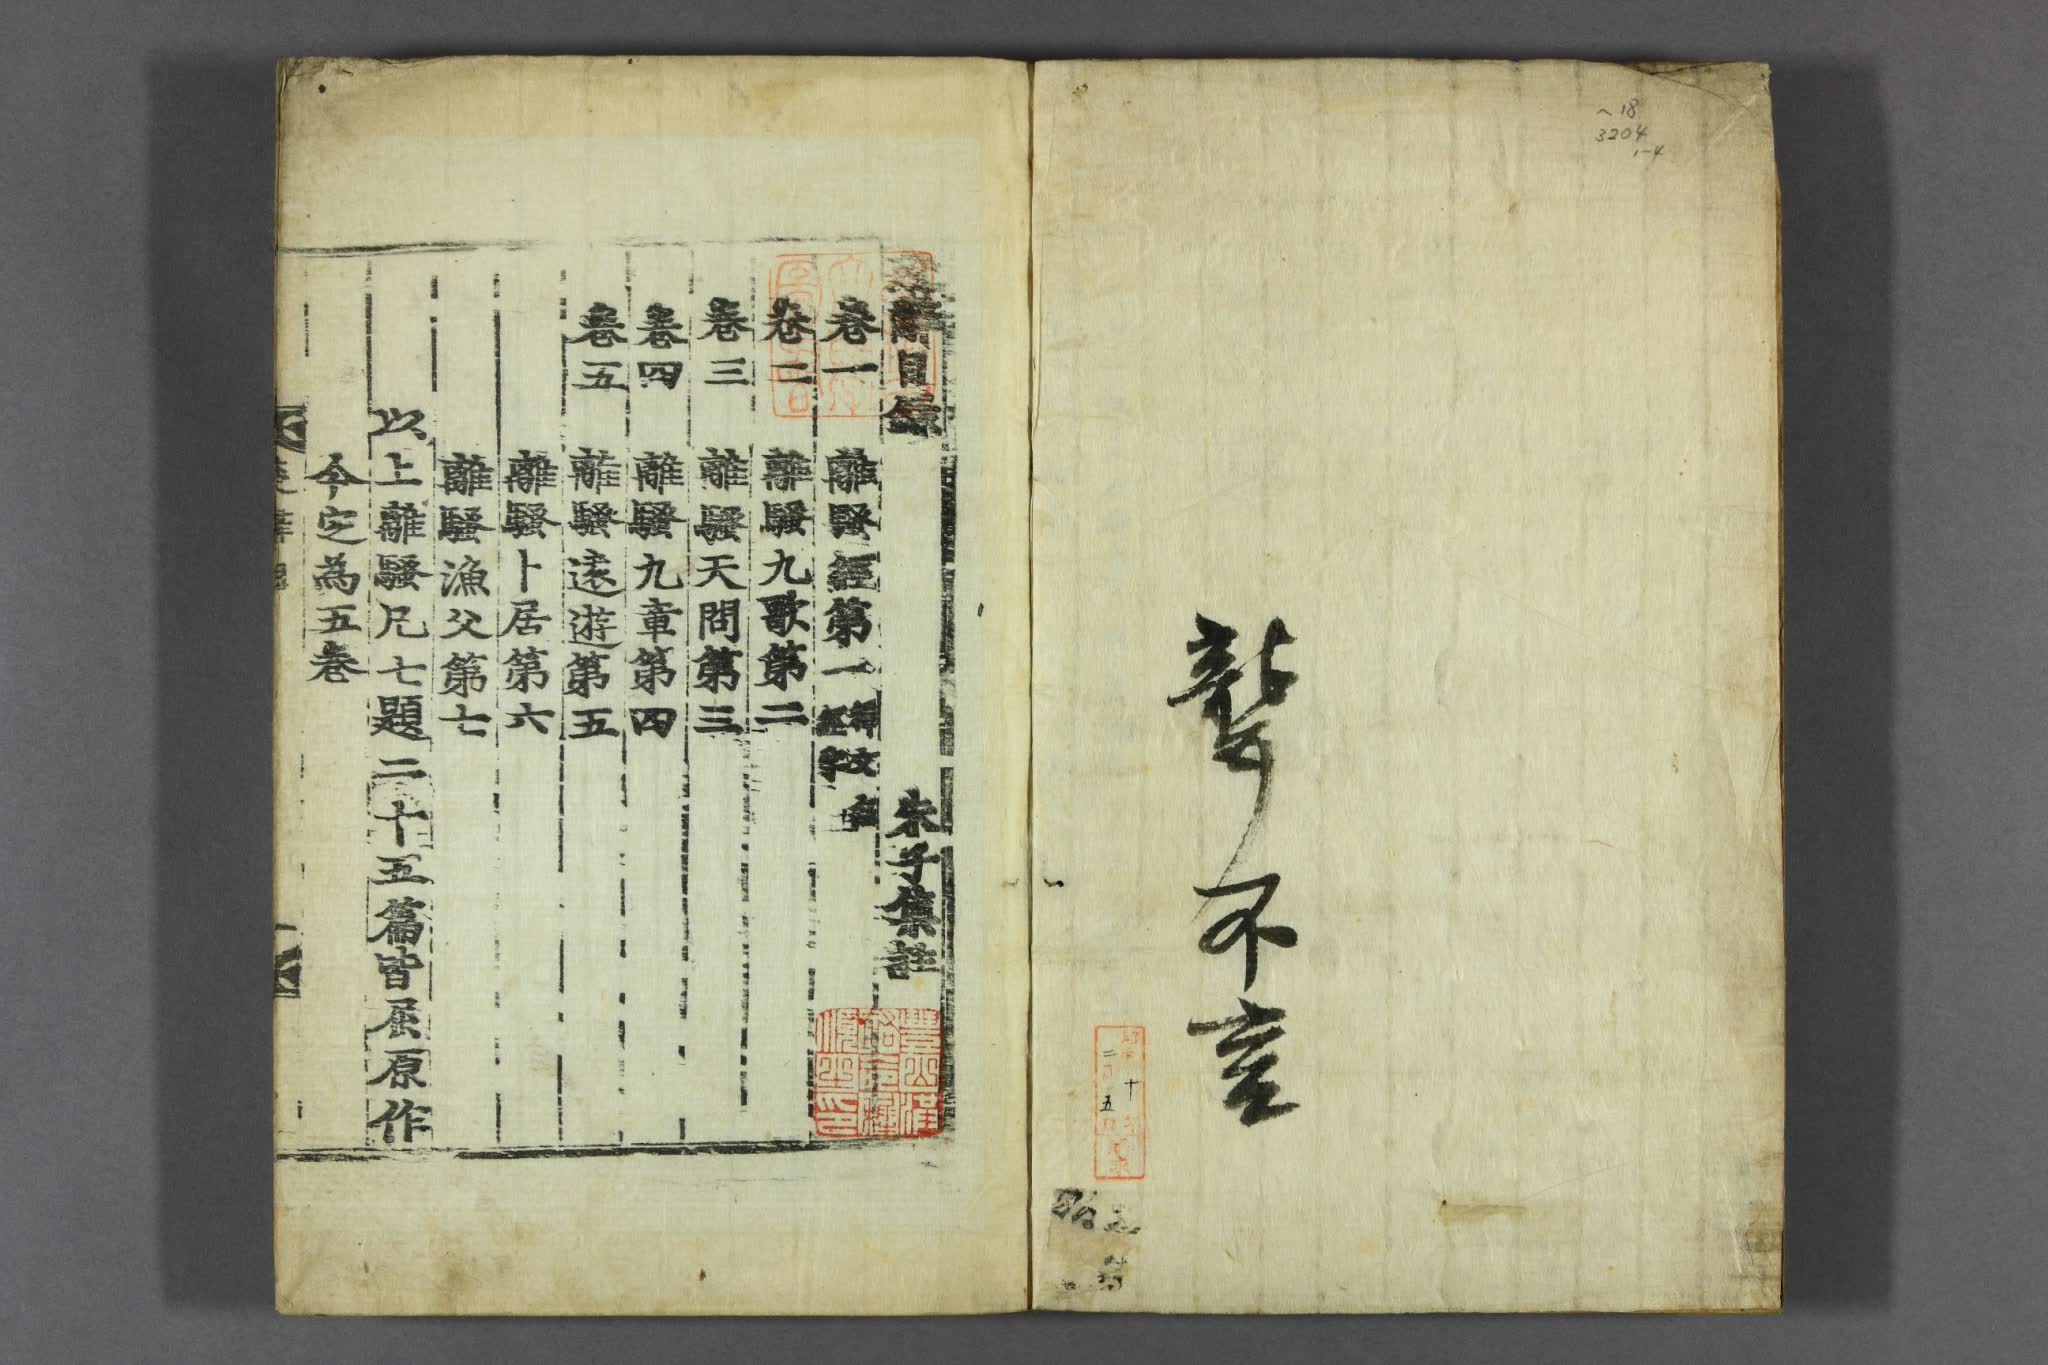 ヘ18
3204
1-4
不言
楚辭目錄
朱子集註
卷一 離騷經第一 釋文無經字
卷二 離騷九歌第二
卷三 離騷天問第三
卷四 離騷九章第四
卷五 離騷遠遊第五
離騷卜居第六
離騷漁父第七
以上離騷凡七題二十五篇皆屈原作
今定為五卷